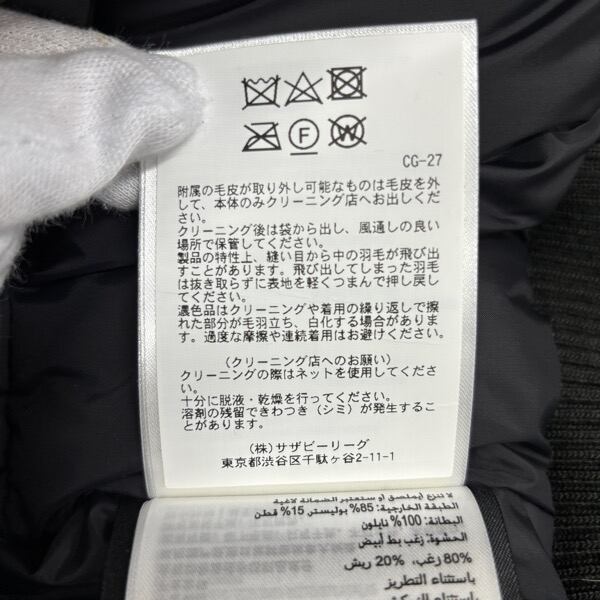 F
W
CG-27
附属の毛皮が取り外し可能なものは毛皮を外
して、本体のみクリーニング店へお出しくださ
い。
クリーニング後は袋から出し、風通しの良い
場所で保管してください。
製品の特性上、縫い目から中の羽毛が飛び出
すことがあります。飛び出してしまった羽毛
は抜き取らずに表地を軽くつまんで押し戻し
てください。
濃色品はクリーニングや着用の繰り返しで擦
れた部分が毛羽立ち、白化する場合がありま
す。過度な摩擦や連続着用はお避けください。
(クリーニング店へのお願い)
クリーニングの際はネットを使用してくださ
い。
十分に脱液・乾燥を行ってください。
溶剤の残留できわつき(シミ)が発生するこ
とがあります。
(株)サザビーリーグ
東京都渋谷区千駄ヶ谷2-11-1
لا تنزع أيملصق او ستعتبر الضمانة لاغية
الطبقة الخارجية: 85% بوليستر 15% قطن
البطانة: 100% نايلون
الحشوة: زغب بط أبيض
80% زغب، 20% ريش
باستثناء التطريز